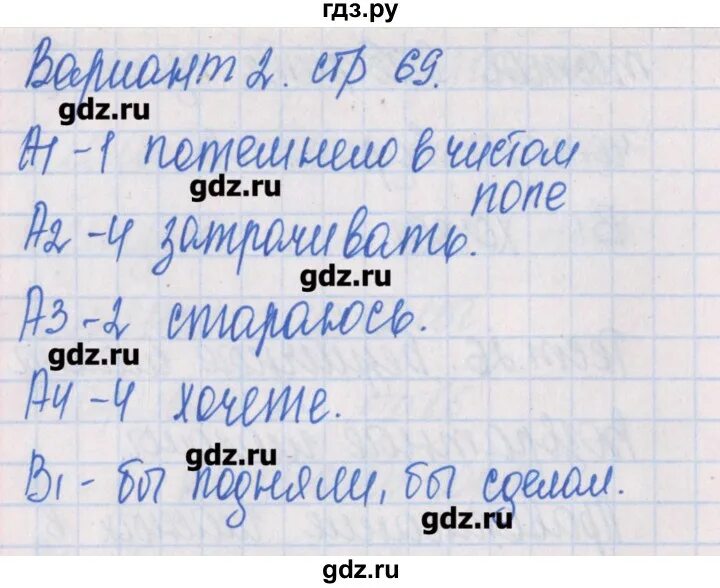 гдз.ру
Вариант 2. стр 69.
gdz.ru
А1 - 1 потемнело в чистом
поле
gdz.ru
А2 - 4 затрачивать.
gdz.ru
А3 - 2 стараюсь.
gdz.ru
А4 - 4 хочете.
gdz.ru
В1 - бы подняли, бы сделал.
gdz.ru
gdz.ru